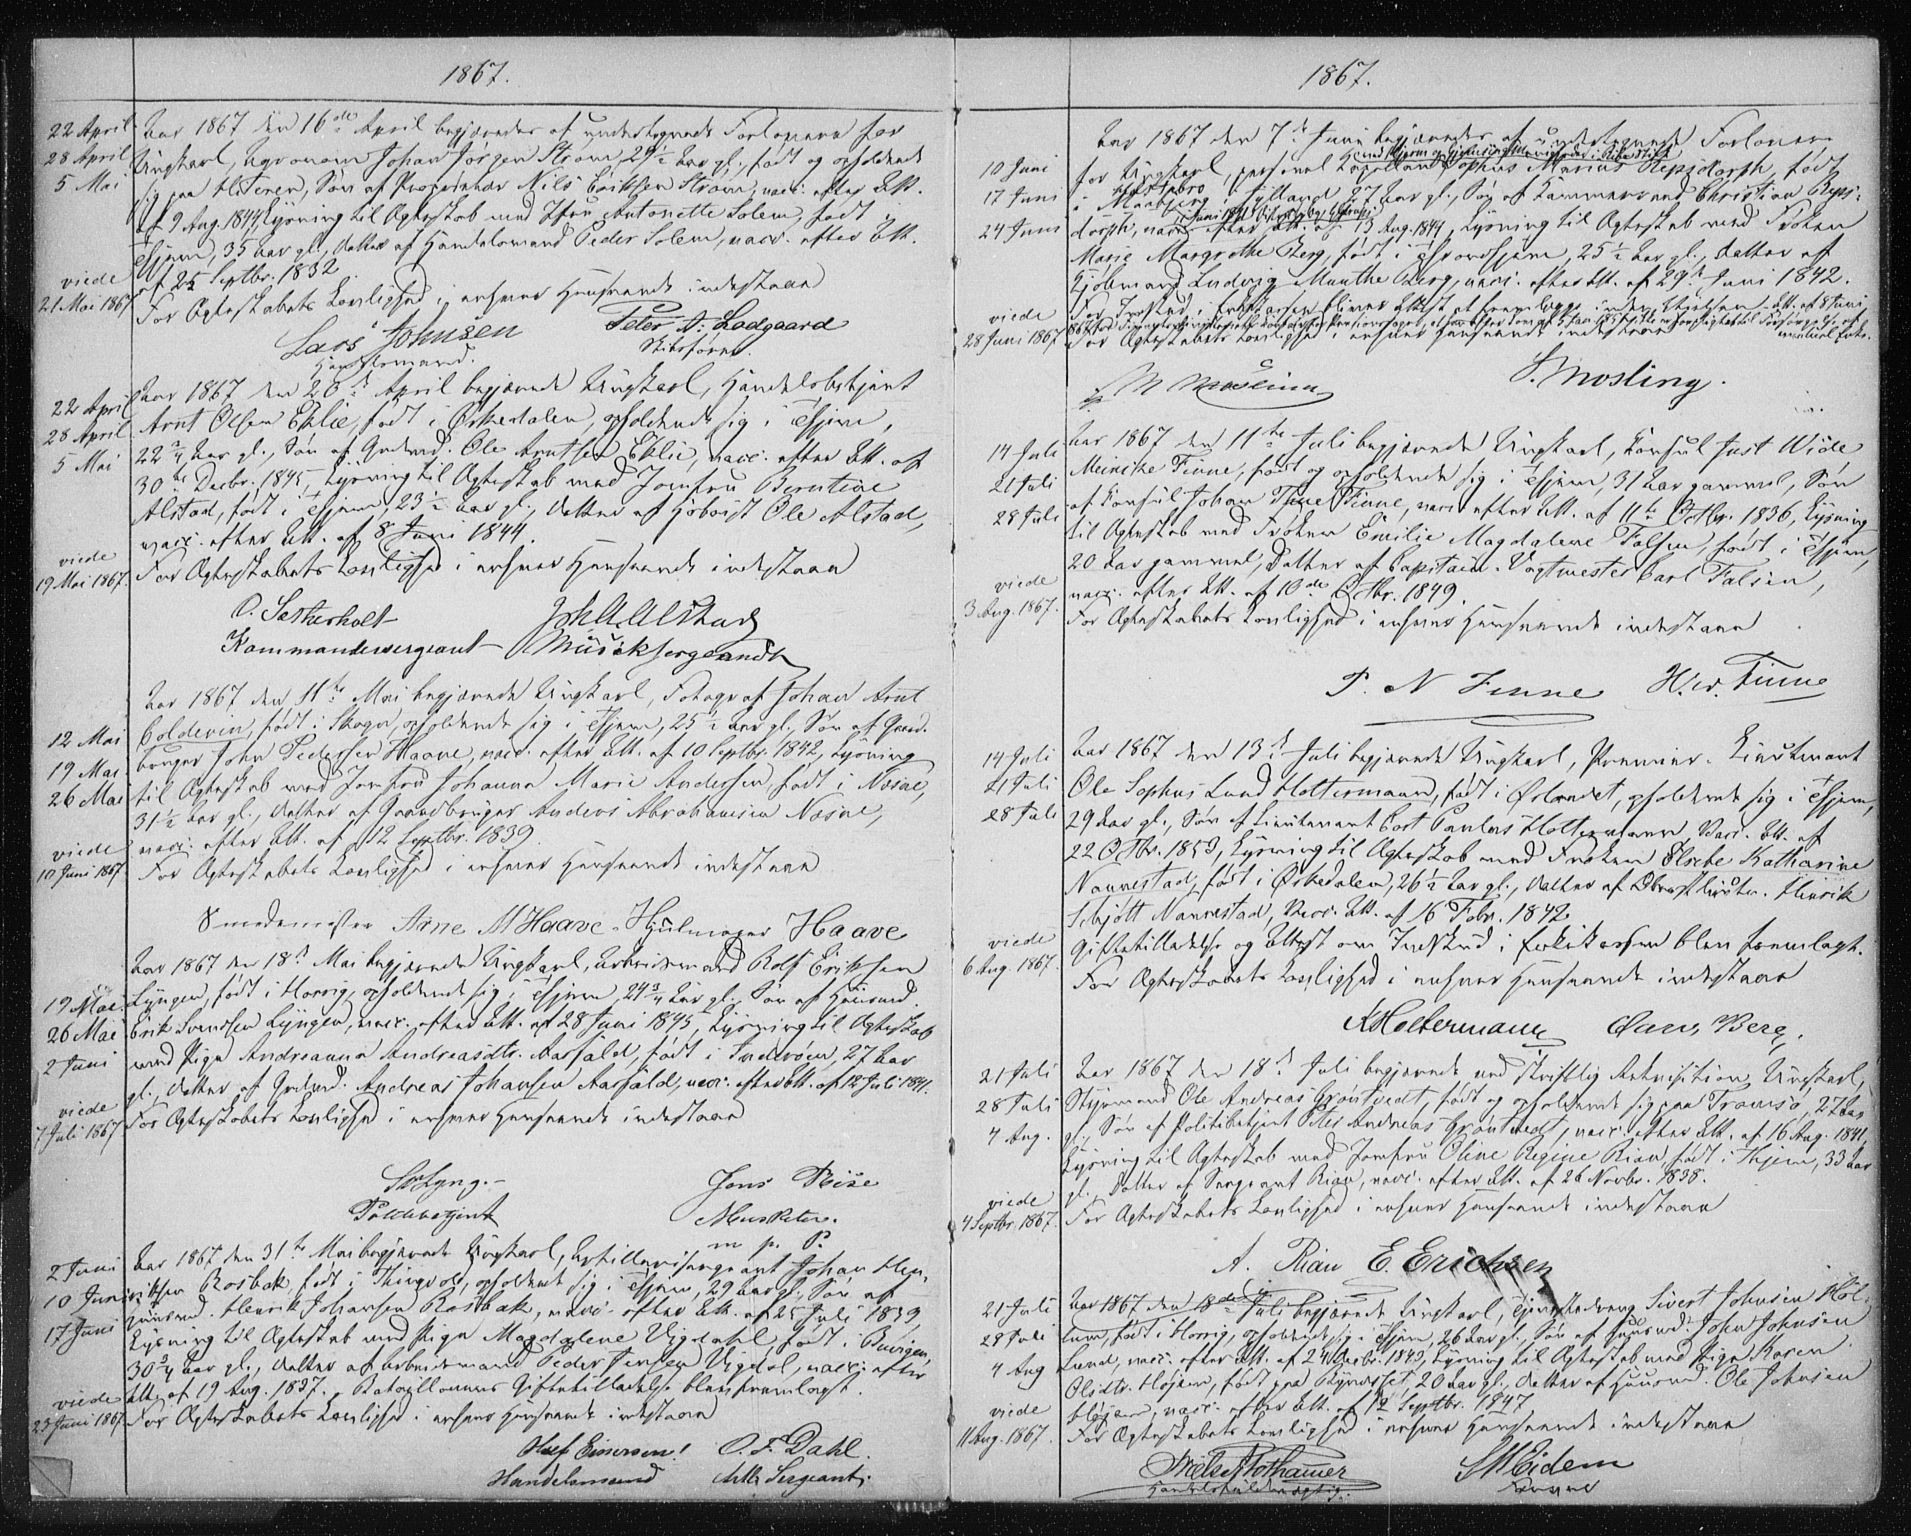 1867.
22 April
28 April
5 Mai
Aar 1867 den 16de April begjæredes af undertegnede Forlovere for
Ungkarl, Agronom Johan Jørgen Strøm, 29½ Aar gl., født og opholdende
sig paa Hitteren, Søn af Proprietær Nils Eriksen Strøm, vacc. efter Att.
af 9 Aug. 1844, Lysning til Ægteskab med Jfru Antonette Solem, født i
Thjem, 35 Aar gl., Datter af Handelsmand Peder Solem, vacc. efter Att.
af 25 Septbr. 1832.
viede
21 Mai 1867
For Ægteskabets Lovlighed i enhver Henseende indestaaer
Lars Johnsen
Handelsmand.
Peter A. Lodgaard
Skibsfører.
22 April
28 April
5 Mai
Aar 1867 den 20de April begjærede Ungkarl, Handelsbetjent
Arnt Olsen Eklie, født i Ørkedalen, opholdende sig i Thjem,
22¾ Aar gl., Søn af Gmd. Ole Arntsen Eklie, vacc. efter Att. af
30te Decbr. 1845, Lysning til Ægteskab med Jomfru Berntine
Alstad, født i Thjem, 23½ Aar gl., Datter af Ole Alstad,
vacc. efter Att. af 8 Juni 1844.
viede
19 Mai 1867.
For Ægteskabets Lovlighed i enhver Henseende indestaaer
O. Sætherholt
Kommandersergeant
Joh A Alstad
Musiksergeandt
12 Mai
19 Mai
26 Mai
Aar 1867 den 11te Mai begjærede Ungkarl, Fotograf Johan Arnt
Coldevin, født i Skogn, opholdende sig i Thjem, 25½ Aar gl., Søn af Gaard-
bruger John Pedersen Haave, vacc. efter Att. af 10 Septbr. 1842, Lysning
til Ægteskab med Jomfru Johanna Marie Andersen, født i Næsne,
31½ Aar gl., Datter af Gaardbruger Anders Abrahamsen Næsne,
vacc. efter Att. af 12 Septbr. 1839.
viede
10 Juni 1867
For Ægteskabets Lovlighed i enhver Henseende indestaaer
Smedemester Arne M Haave Hjulmager Haave
19 Mai
26 Mai
2 Juni
Aar 1867 den 18de Mai begjærede Ungkarl, Arbeidsmand Rolf Eriksen
Lyngen, født i Horrig, opholdende sig i Thjem, 24¾ Aar gl., Søn af Huusmd.
Erik Svendsen Lyngen, vacc. efter Att. af 28 Juni 1845, Lysning til Ægteskab
med Pige Andreanna Andreasdtr. Aasfald, født i Inderøen, 27 Aar
gl., Datter af Gmd. Andreas Johansen Aasfald, vacc. efter Att. af 12 Juli 1841.
viede
7 Juli 1867
For Ægteskabets Lovlighed i enhver Henseende indestaaer
Lyng.
Politibetjent
Jens Riise
Musketer.
m. p. P.
2 Juni
10 Juni
17 Juni
Aar 1867 den 31te Mai begjærede Ungkarl, Artillerisergeant Johan Hen-
riksen Rosbak, født i Thingvold, opholdende sig i Thjem, 29 Aar gl., Søn af
Huusmd. Henrik Johansen Rosbak, vacc. efter Att. af 25 Juli 1839,
Lysning til Ægteskab med Pige Magdalene Vigdahl, født i Buvigen,
30¾ Aar gl., Datter af Arbeidsmand Peder Jensen Vigdal, vacc. efter
Att. af 19 Aug. 1837. Bataillonens Giftetilladelse blev fremlagt.
viede
23 Juni 1867
For Ægteskabets Lovlighed i enhver Henseende indestaaer
Olef Einersen
Handelsmand
O. F. Dahl.
Sergeant.
1867.
10 Juni
17 Juni
24 Juni
Aar 1867 den 7de Juni begjæredes af undertegnede Forlovere
for Ungkarl, personel Kapellan Sophus Marius Repsdorph, født
i Maabjerg i Jylland, 27 Aar gl., Søn af Kammerraad Christian Reps-
dorph, vacc. efter Att. af 13 Aug. 1844, Lysning til Ægteskab med Frøken
Marie Margrethe Berg, født i Throndhjem, 25½ Aar gl., Datter af
Kjøbmand Ludvig Munthe Berg, vacc. efter Att. af 29de Juni 1842.
viede
28 Juni 1867
For Ægteskabets Lovlighed i enhver Henseende indestaaer
S. Mosling.
14 Juli
21 Juli
28 Juli
Aar 1867 den 11te Juli begjærede Ungkarl, Konsul Just Wide
Meinike Finne, født og opholdende sig i Thjem, 31 Aar gammel, Søn
af Konsul Johan Finne, vacc. efter Att. af 11te Octbr. 1836, Lysning
til Ægteskab med Frøken Emilie Magdalene Falsen, født i Thjem,
20 Aar gammel, Datter af Capitain-Vagtmester Carl Falsen,
vacc. efter Att. af 10de Octbr. 1849.
viede
3 Aug. 1867.
For Ægteskabets Lovlighed i enhver Henseende indestaaer
P. N Finne H. Finne
14 Juli
21 Juli
28 Juli
Aar 1867 den 13de Juli begjærede Ungkarl, Premier-Lieutenant
Ole Sophus Lund Holtermann, født i Ørlandet, opholdende sig i Thjem,
29 Aar gl., Søn af Lieutenant Cort Paulus Holtermann, Vacc. Att. af
22 Octbr. 1853, Lysning til Ægteskab med Frøken Elsebe Katharine
Nannestad, født i Ørkedalen, 26½ Aar gl., Datter af Oberstlieutn. Henrik
Schjött Nannestad, Vacc. Att. af 16 Febr. 1842.
Giftetilladelse og Attest om Indskud i Enkekassen blev fremlagt.
viede
6 Aug. 1867.
For Ægteskabets Lovlighed i enhver Henseende indestaaer
Holtermann Berg.
21 Juli
28 Juli
4 Aug.
Aar 1867 den 18de Juli begjærede ved skriftlig Rekvisition Ungkarl,
Styrmand Ole Andreas Grøntvedt, født og opholdende sig paa Tromsø, 27 Aar
gl., Søn af Politibetjent Peter Andreas Grøntvedt, vacc. efter Att. af 16 Aug. 1841,
Lysning til Ægteskab med Jomfru Oline Regine Rian, født i Thjem, 33 Aar
gl., Datter af Sergeant Rian, vacc. efter Att. af 26 Novbr. 1838.
viede
4 Septbr. 1867.
For Ægteskabets Lovlighed i enhver Henseende indestaaer
A. Rian E. Erichsen
21 Juli
28 Juli
4 Aug
Aar 1867 den 18de Juli begjærede Ungkarl, Tjenestedreng Sivert Johnsen Hol-
lum, født i Horrig, opholdende sig i Thjem, 26 Aar gl., Søn af Huusmd. John Johnsen
Lund, vacc. efter Att. af 24 Octbr. 1843, Lysning til Ægteskab med Pige Karen
Olsdtr. Høiem, født paa Byneset, 20 Aar gl., Datter af Huusmd. Ole Johnsen
Høiem, vacc. efter Att. af 12 Septbr. 1847
viede
11 Aug. 1867.
For Ægteskabets Lovlighed i enhver Henseende indestaaer
Niels Rothauer
Eidem